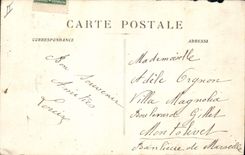 CARTE POSTALE
CORRESPONDANCE
ADRESSE
Bon Souvenir
Amitiés
Mademoiselle
Adèle Orgnon
Villa Magnolia
Boulevard Gillet
Montolivet
Banlieue de Marseille